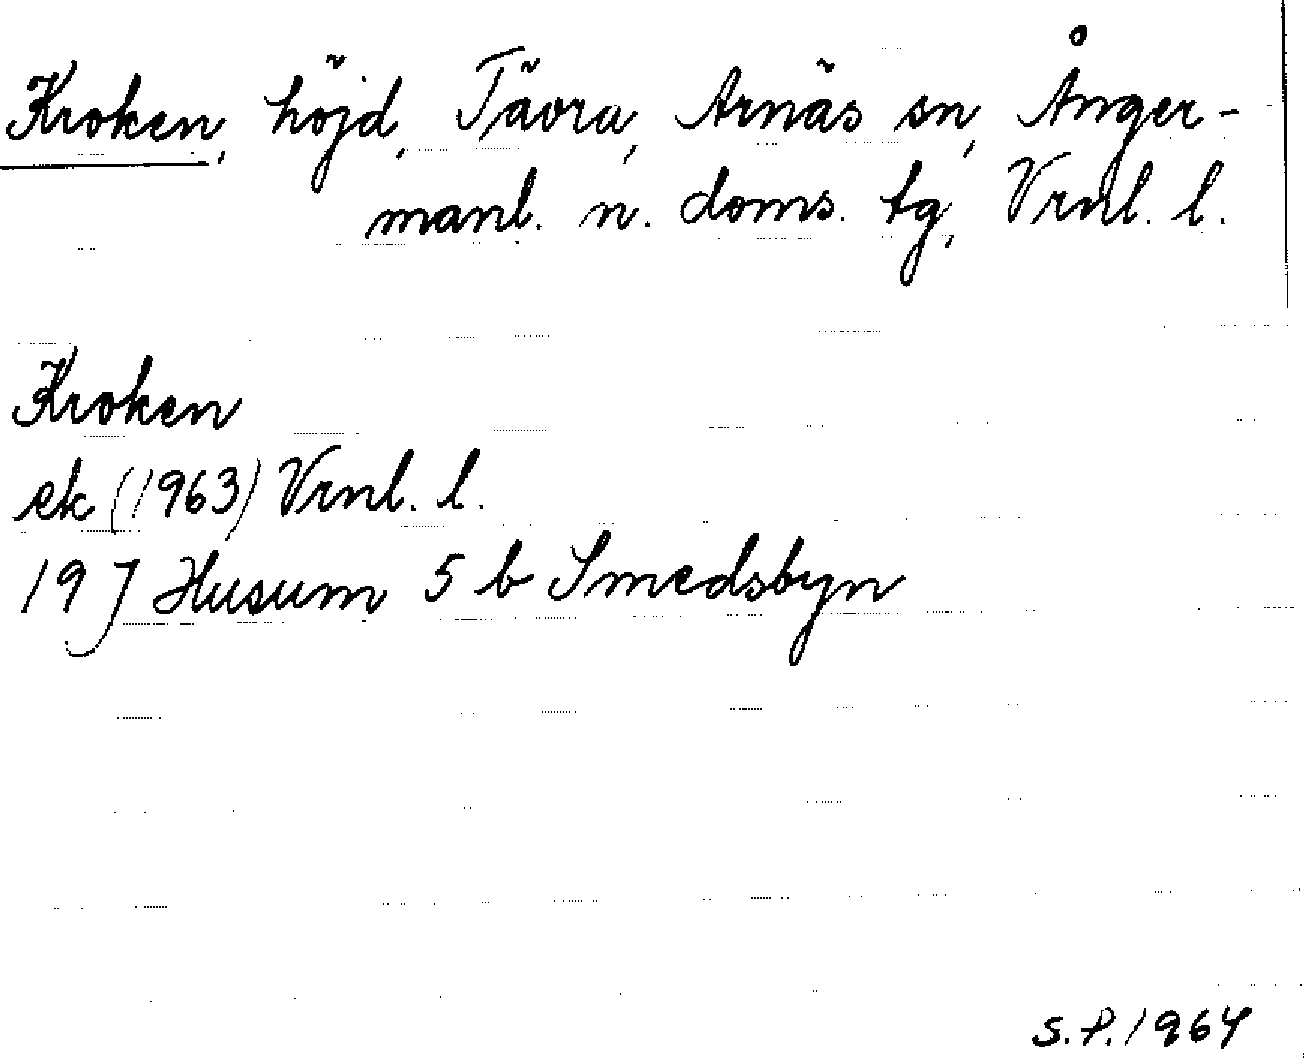 Kroken, höjd, Tävra, Arnäs sn, Ånger-
manl. n. doms. tg, Vrnl. l.
Kroken
ek (1963) Vrnl. l.
19 J Husum 5 b Smedsbyn
S.P. 1964